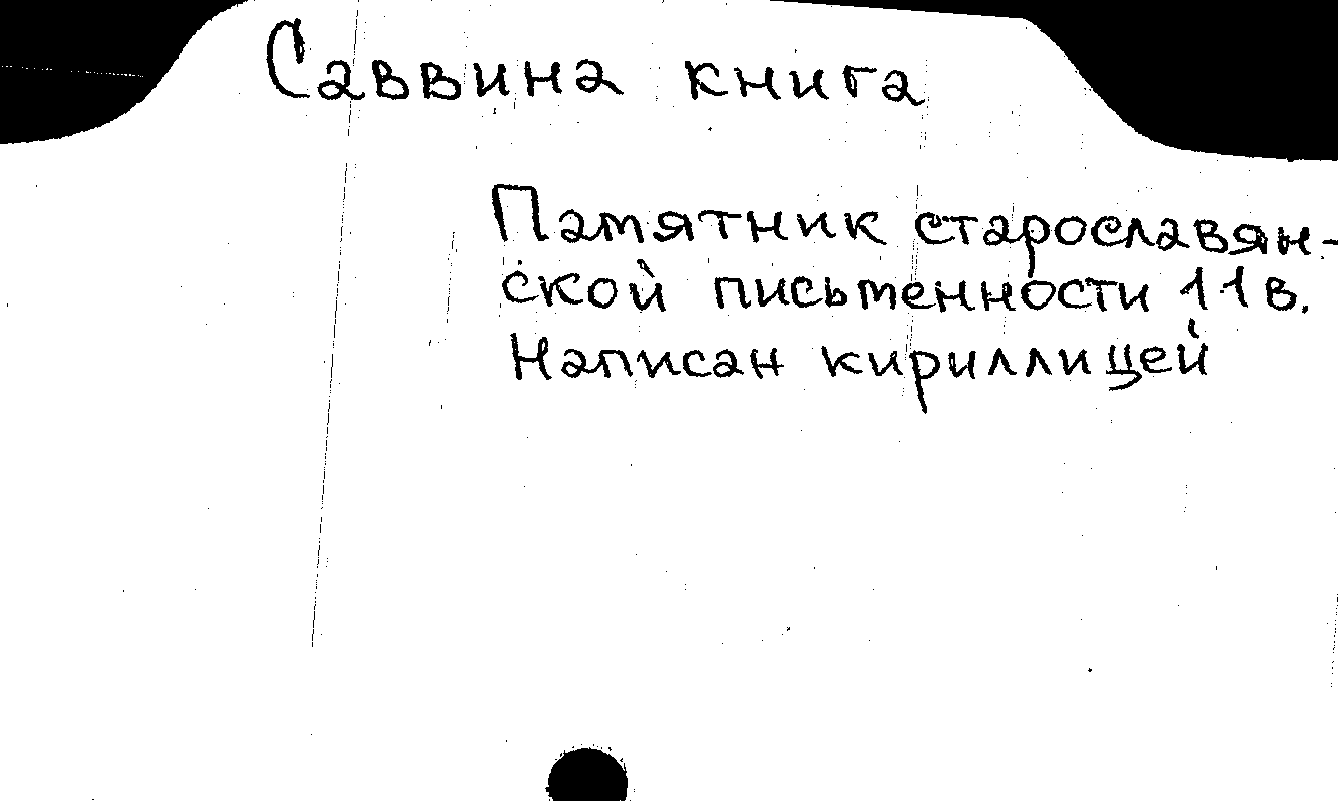 Саввина книга
Памятник старославян-
ской письменности 11 в.
Написан кириллицей